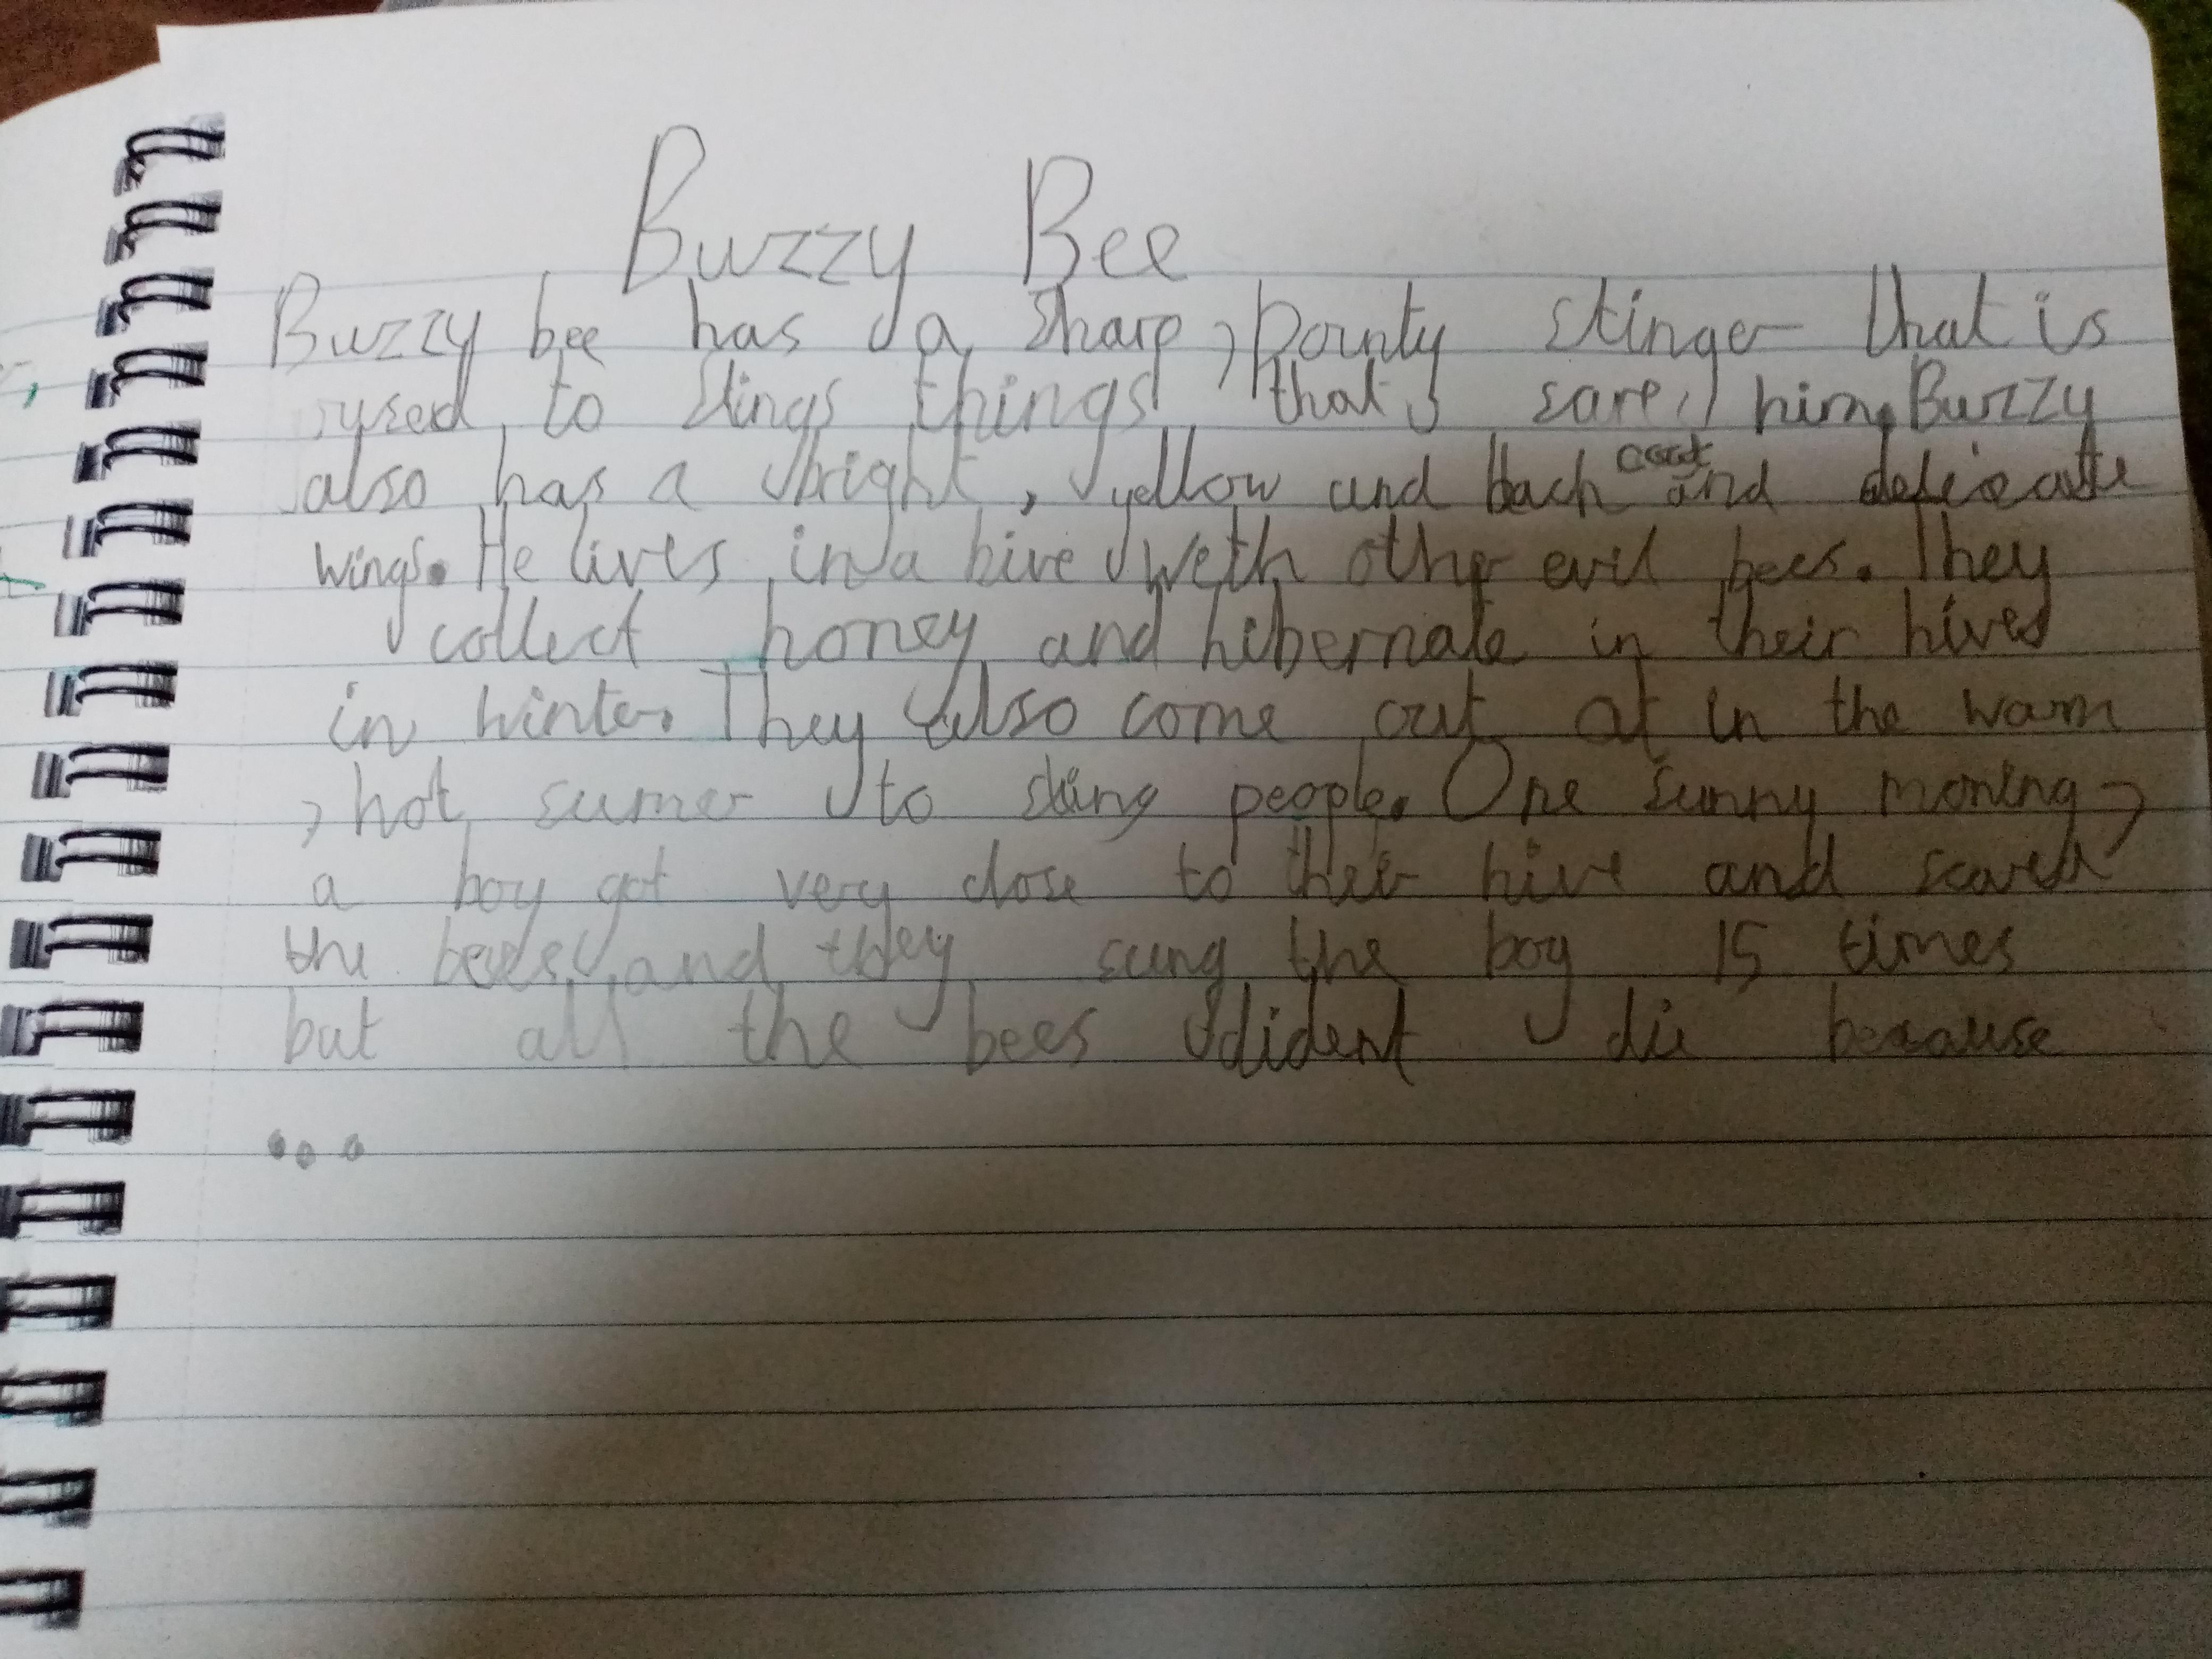 Buzzy Bee
Buzzy bee has a sharp, pointy stinger that is
used to stings things that sare him. Buzzy
also has a bright, yellow and black coat and delicate
wings. He lives in a hive weth other evil bees. They
collect honey and hibernate in their hives
in winter. They also come out at in the warm
, hot sumer to sting people. One sunny morning,
a boy got very close to their hive and scared
the bees and they sung the boy 15 times
but all the bees dident die because
...